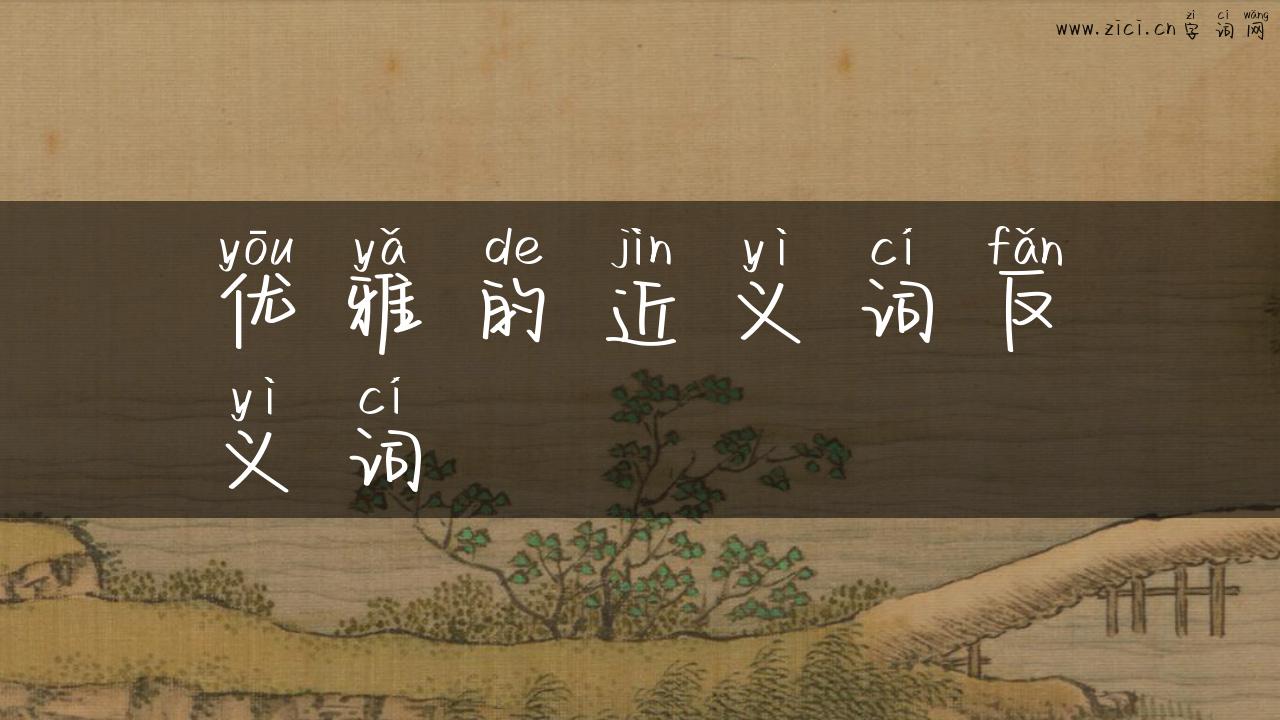 zì cí wǎng
www.zici.cn 字词网
yōu yǎ de jìn yì cí fǎn
优雅的近义词反
yì cí
义词